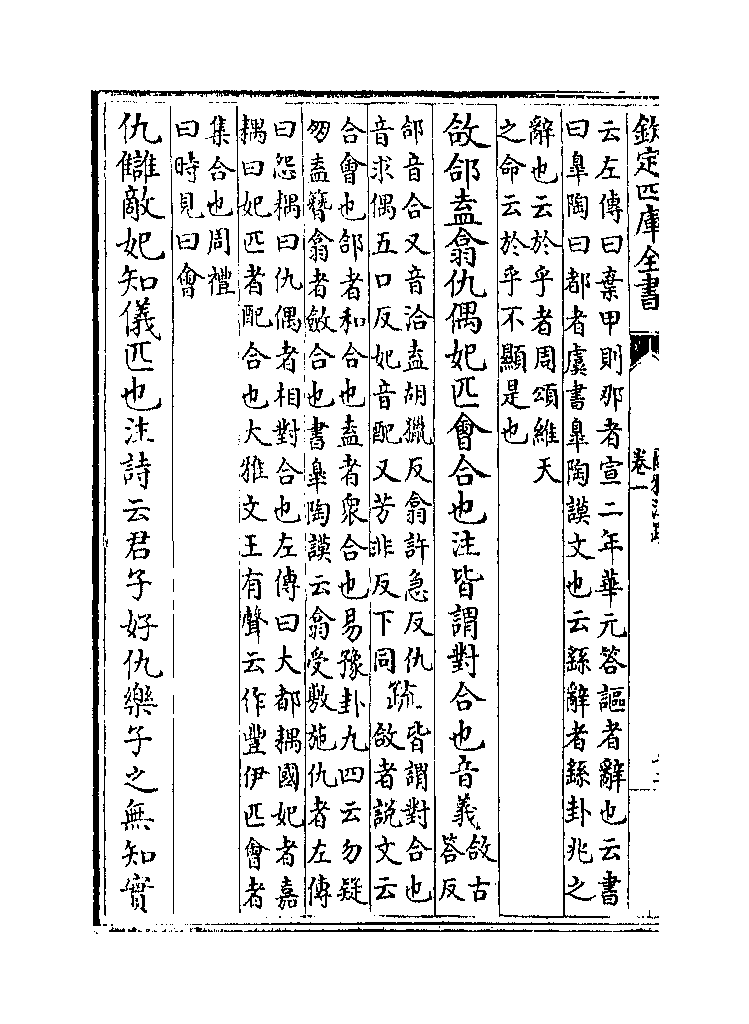 欽定四庫全書
卷一
云左傳曰棄甲則那者宣二年華元答謳者辭也云書
曰臯陶曰都者虞書臯陶謨文也云繇辭者繇卦兆之
辭也云於乎者周頌維天
之命云於乎不顯是也
敆郃盍翕仇偶妃匹會合也注皆謂對合也音義敆古
答反
郃音合又音洽盍胡獵反翕許急反仇
音求偶五口反妃音配又芳非反下同
疏皆謂對合也
敆者説文云
合會也郃者和合也盍者衆合也易豫卦九四云勿疑
朋盍簪翕者斂合也書臯陶謨云翕受敷施仇者左傳
曰怨耦曰仇偶者相對合也左傳曰大都耦國妃者嘉
耦曰妃匹者配合也大雅文王有聲云作豐伊匹會者
集合也周禮
曰時見曰會
仇讎敵妃知儀匹也注詩云君子好仇樂子之無知實